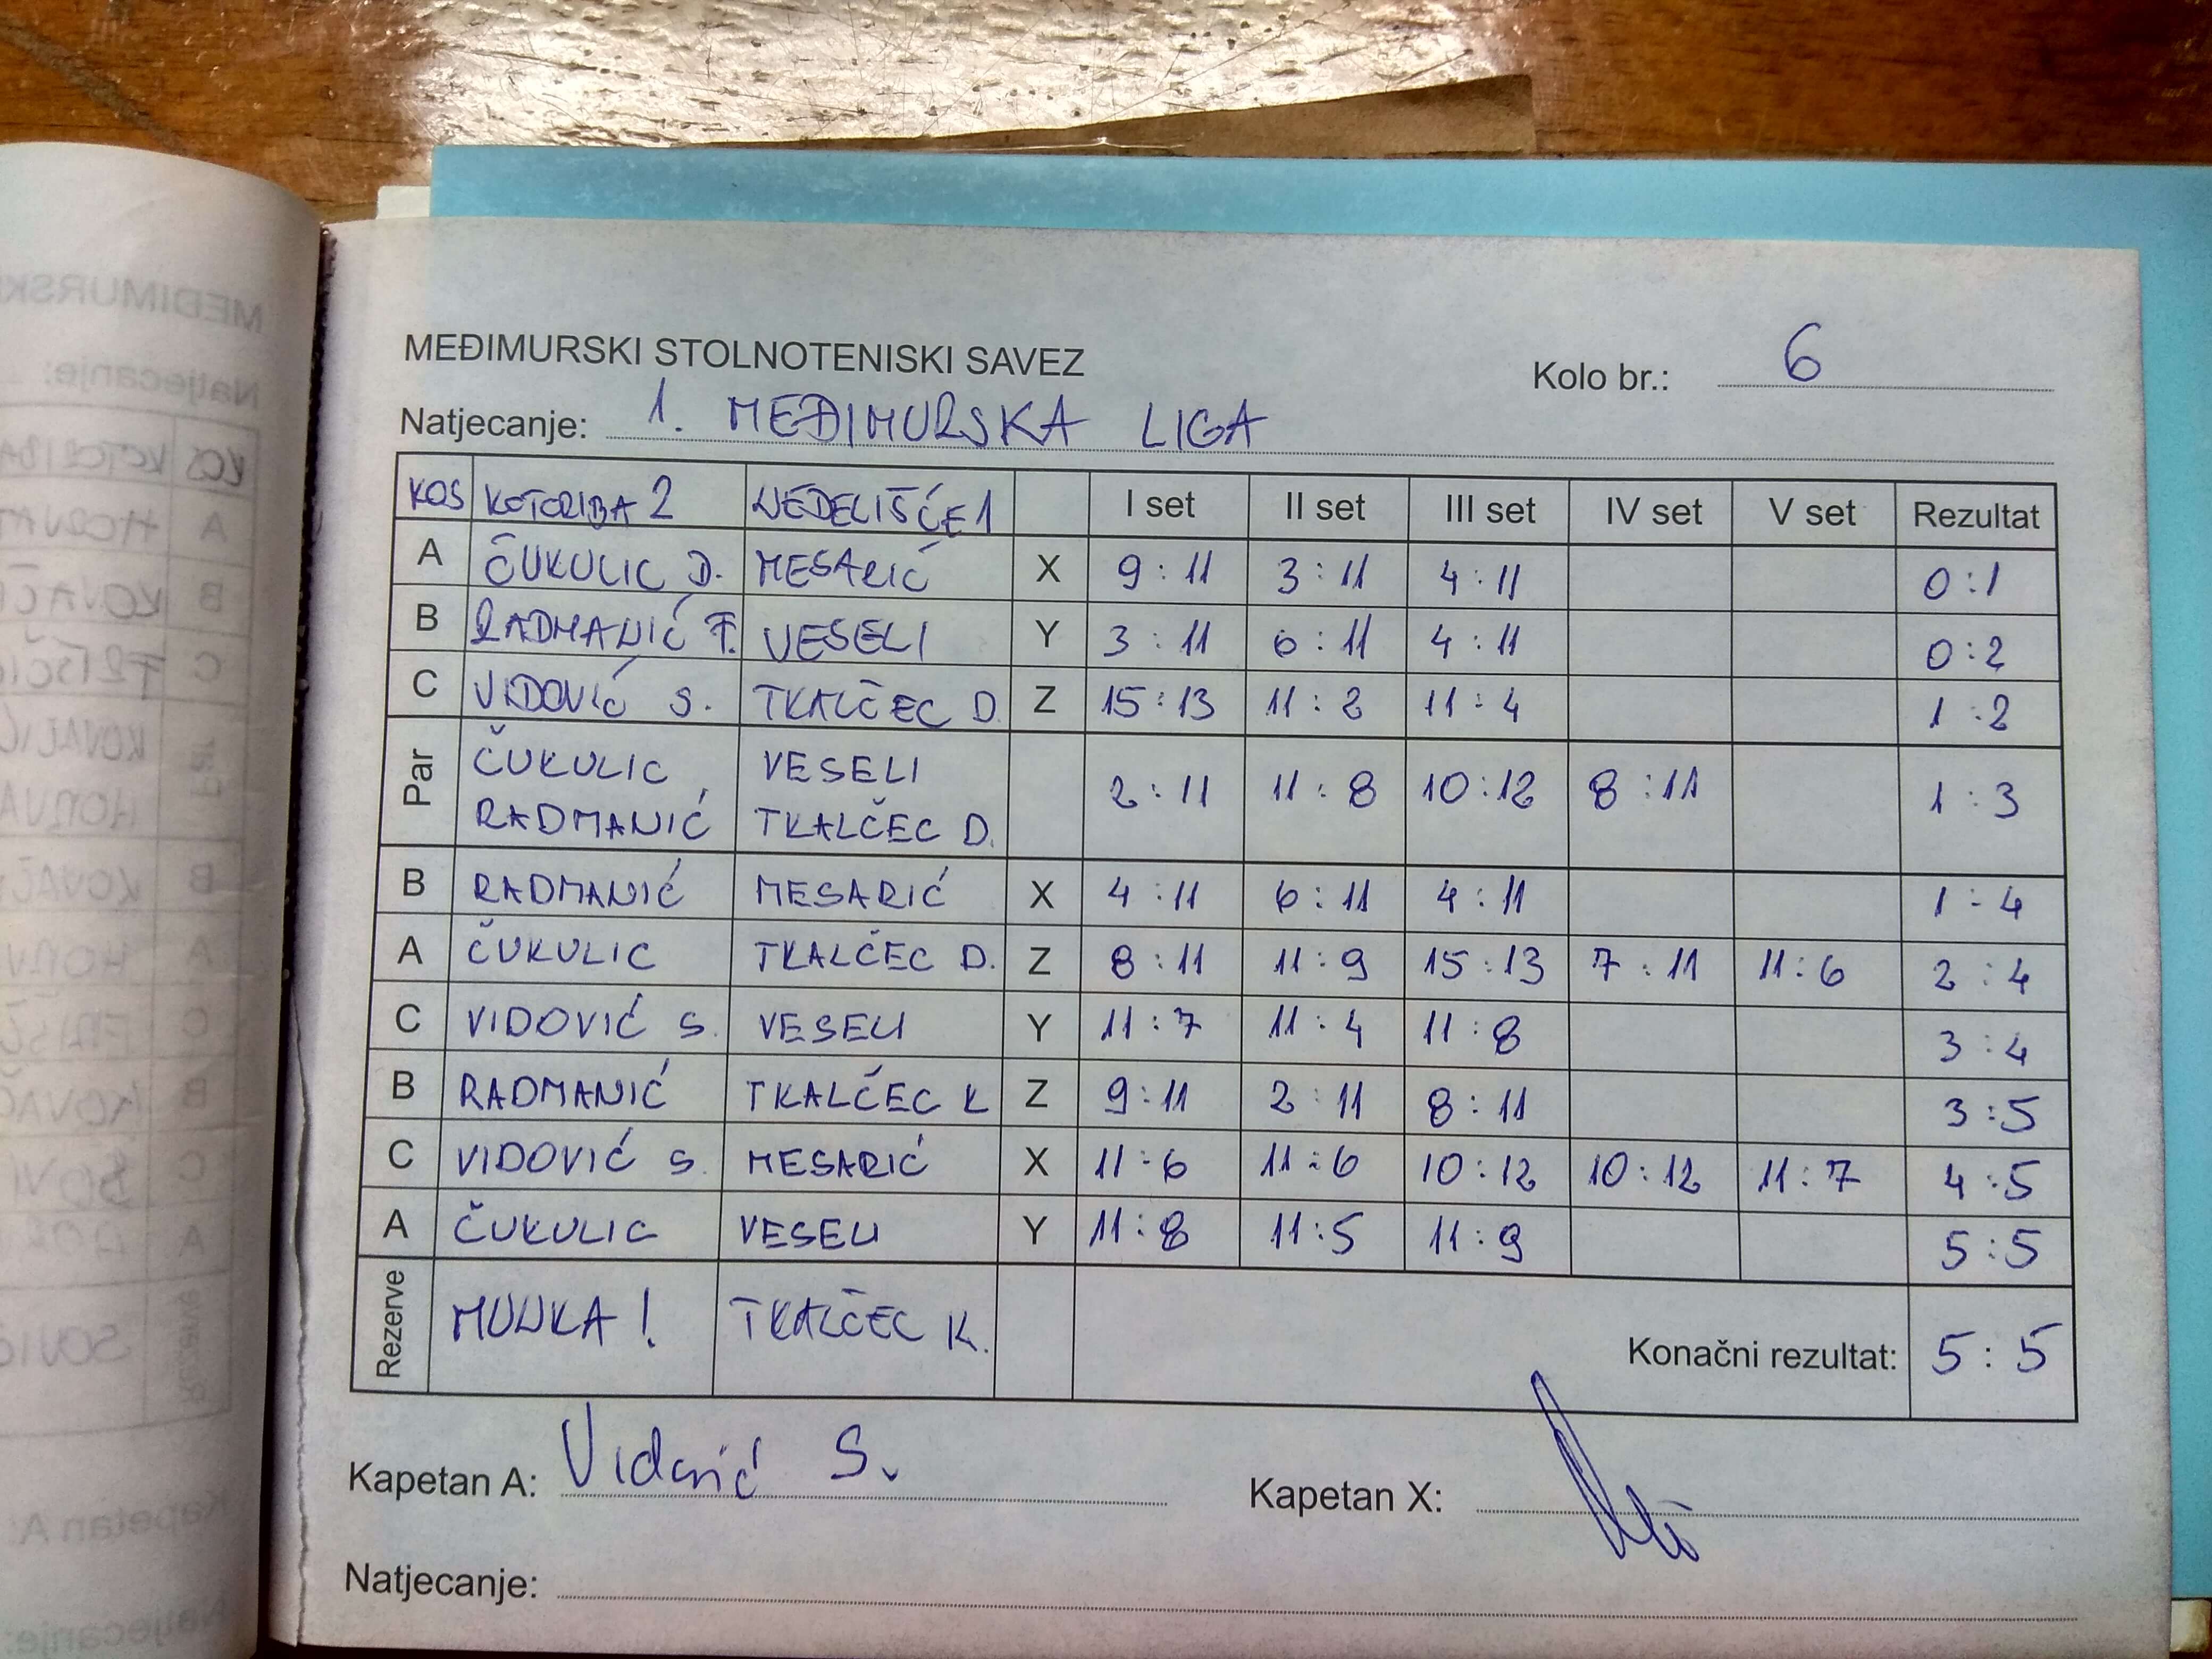 MEĐIMURSKI STOLNOTENISKI SAVEZ
Kolo br.: 6
Natjecanje: 1. MEĐIMURSKA LIGA
KOS KOTORIBA 2 NEDELIŠĆE 1 I set II set III set IV set V set Rezultat
A ČUKULIC D. MESARIĆ X 9:11 3:11 4:11 0:1
B RADMANIĆ F. VESELI Y 3:11 6:11 4:11 0:2
C VIDOVIĆ S. TKALČEC D. Z 15:13 11:2 11:4 1:2
Par ČUKULIC VESELI 2:11 11:8 10:12 8:11 1:3
RADMANIĆ TKALČEC D.
B RADMANIĆ MESARIĆ X 4:11 6:11 4:11 1:4
A ČUKULIC TKALČEC D. Z 8:11 11:9 15:13 7:11 11:6 2:4
C VIDOVIĆ S. VESELI Y 11:7 11:4 11:8 3:4
B RADMANIĆ TKALČEC K Z 9:11 2:11 8:11 3:5
C VIDOVIĆ S. MESARIĆ X 11:6 11:6 10:12 10:12 11:7 4:5
A ČUKULIC VESELI Y 11:8 11:5 11:9 5:5
Rezerve MUNKA! TKALČEC K. Konačni rezultat: 5:5
Kapetan A: Vidović S. Kapetan X:
Natjecanje: